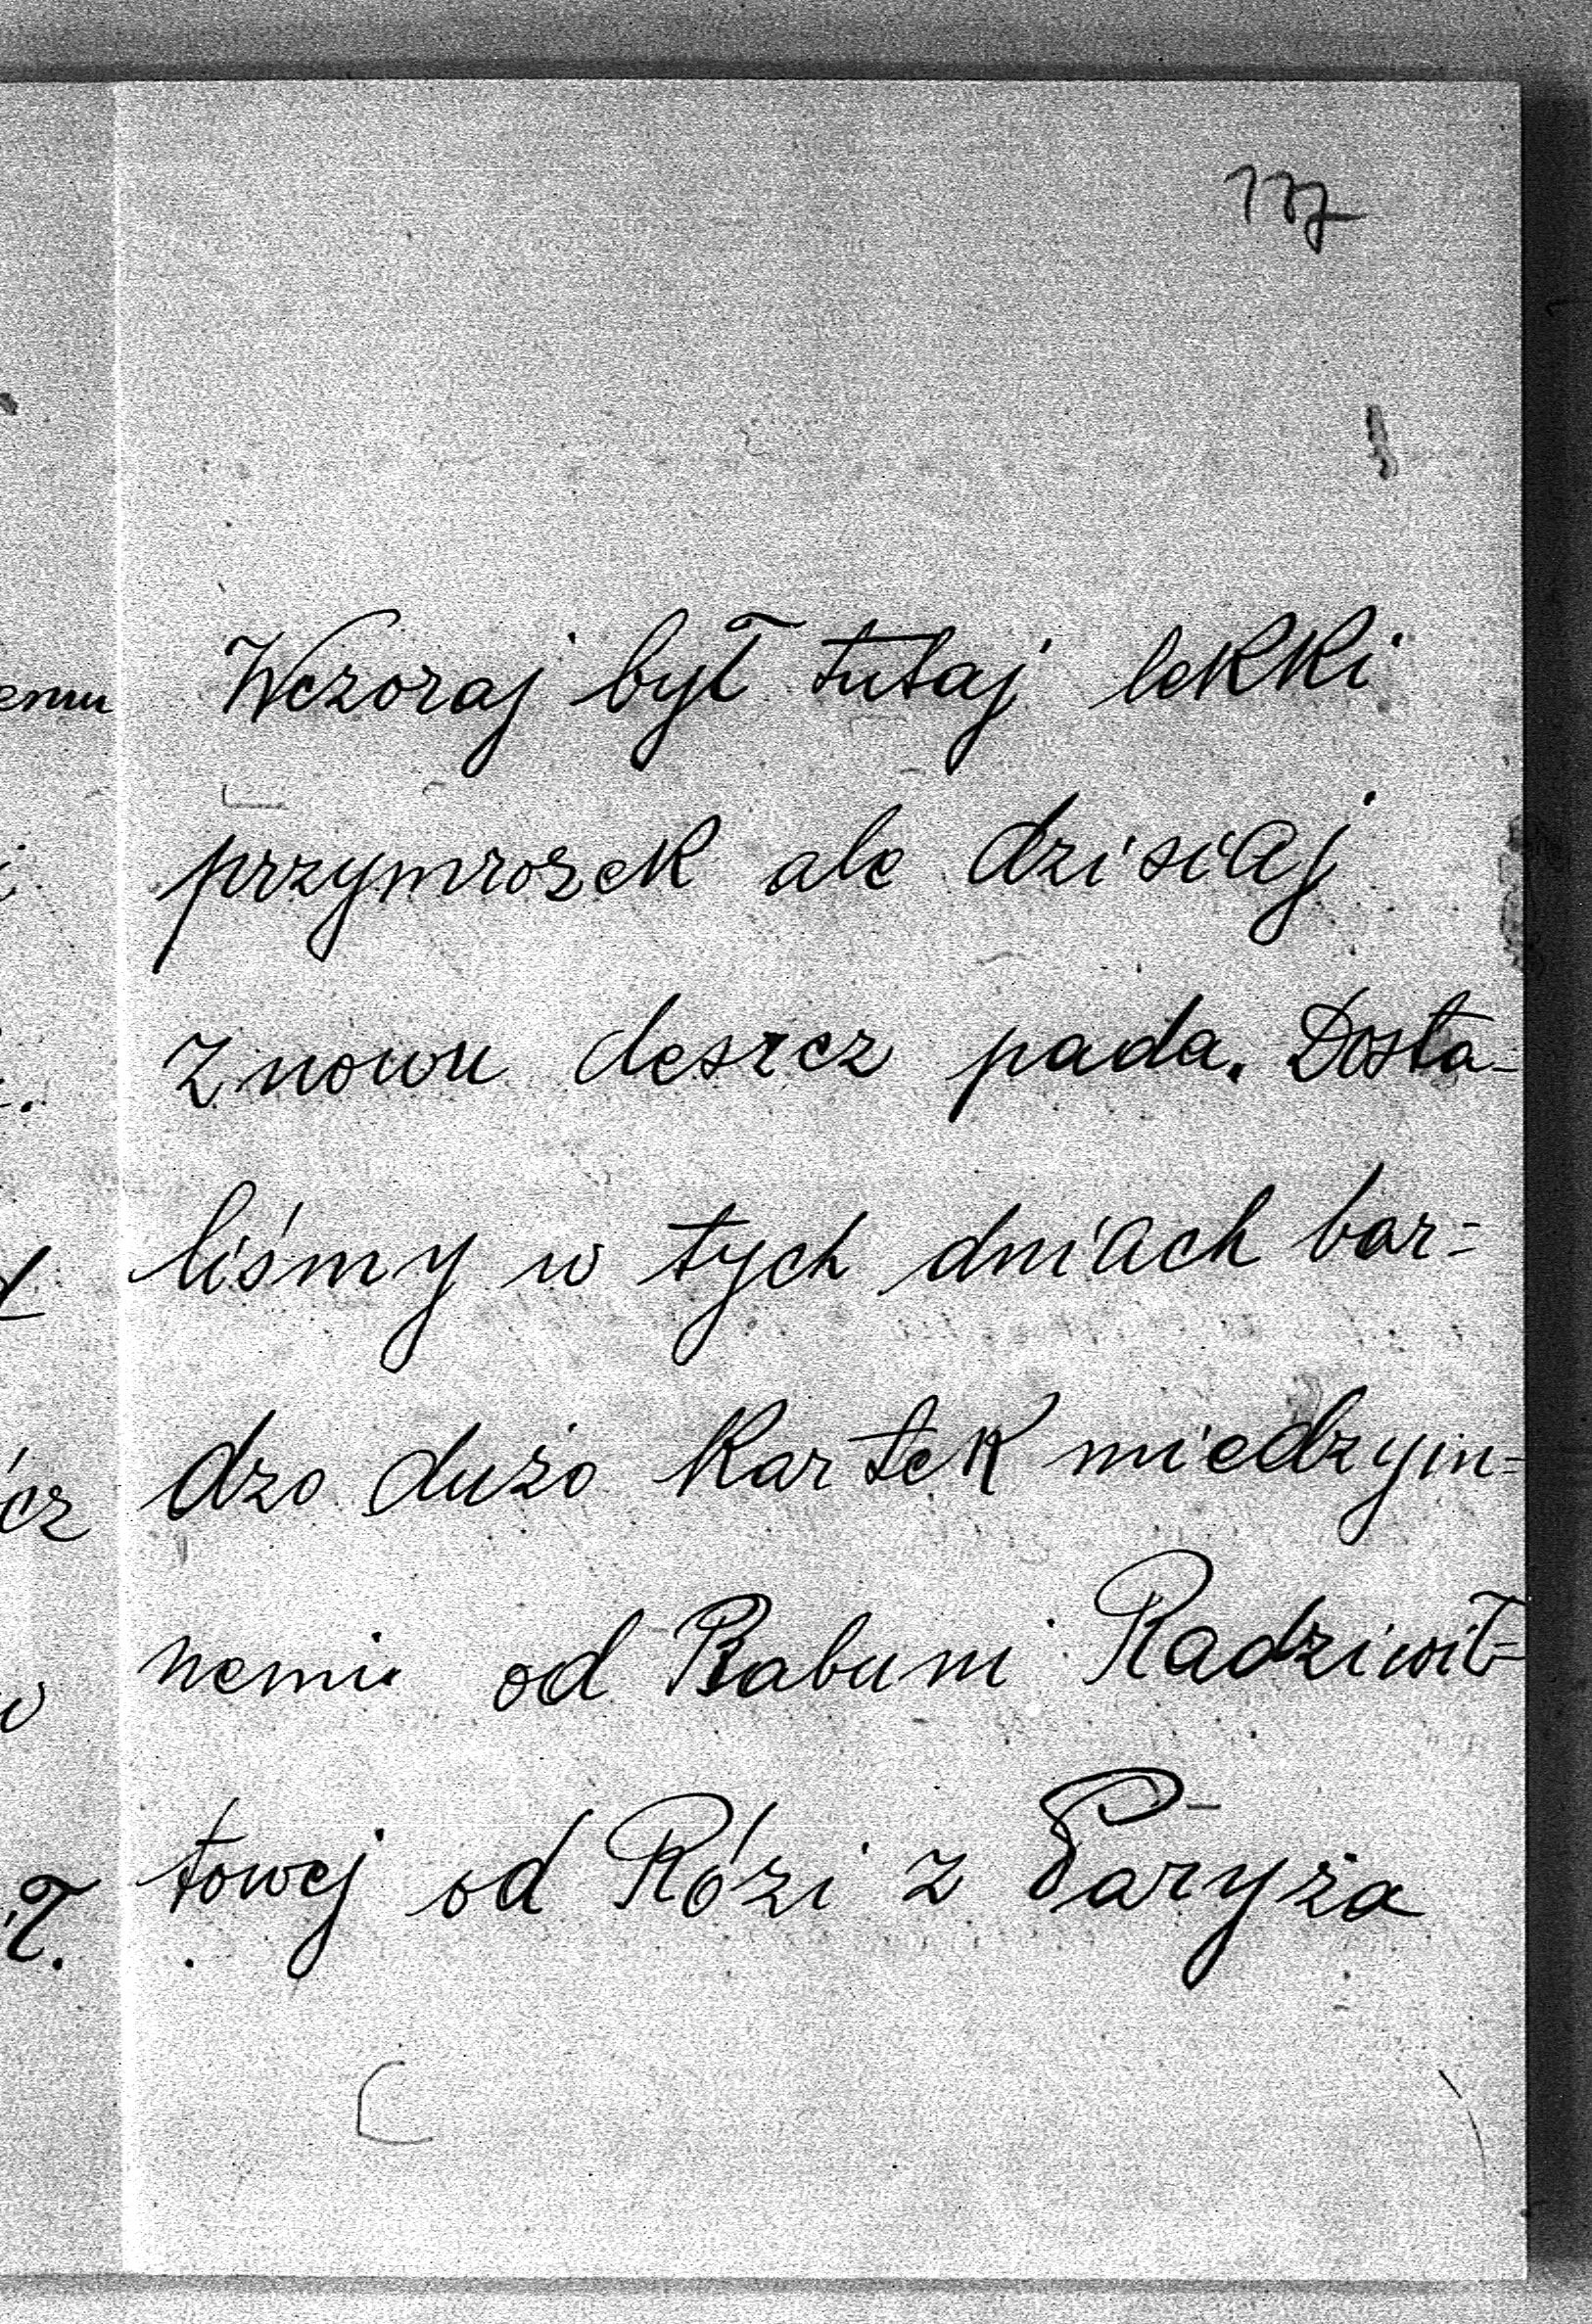 137
Wczoraj był tutaj lekki
przymrozek ale dzisiaj
znowu deszcz pada. Dosta-
liśmy w tych dniach bar=
dzo dużo kartek miedzyin=
nemi od Babuni Radziwił=
towej od Rózi z Paryża